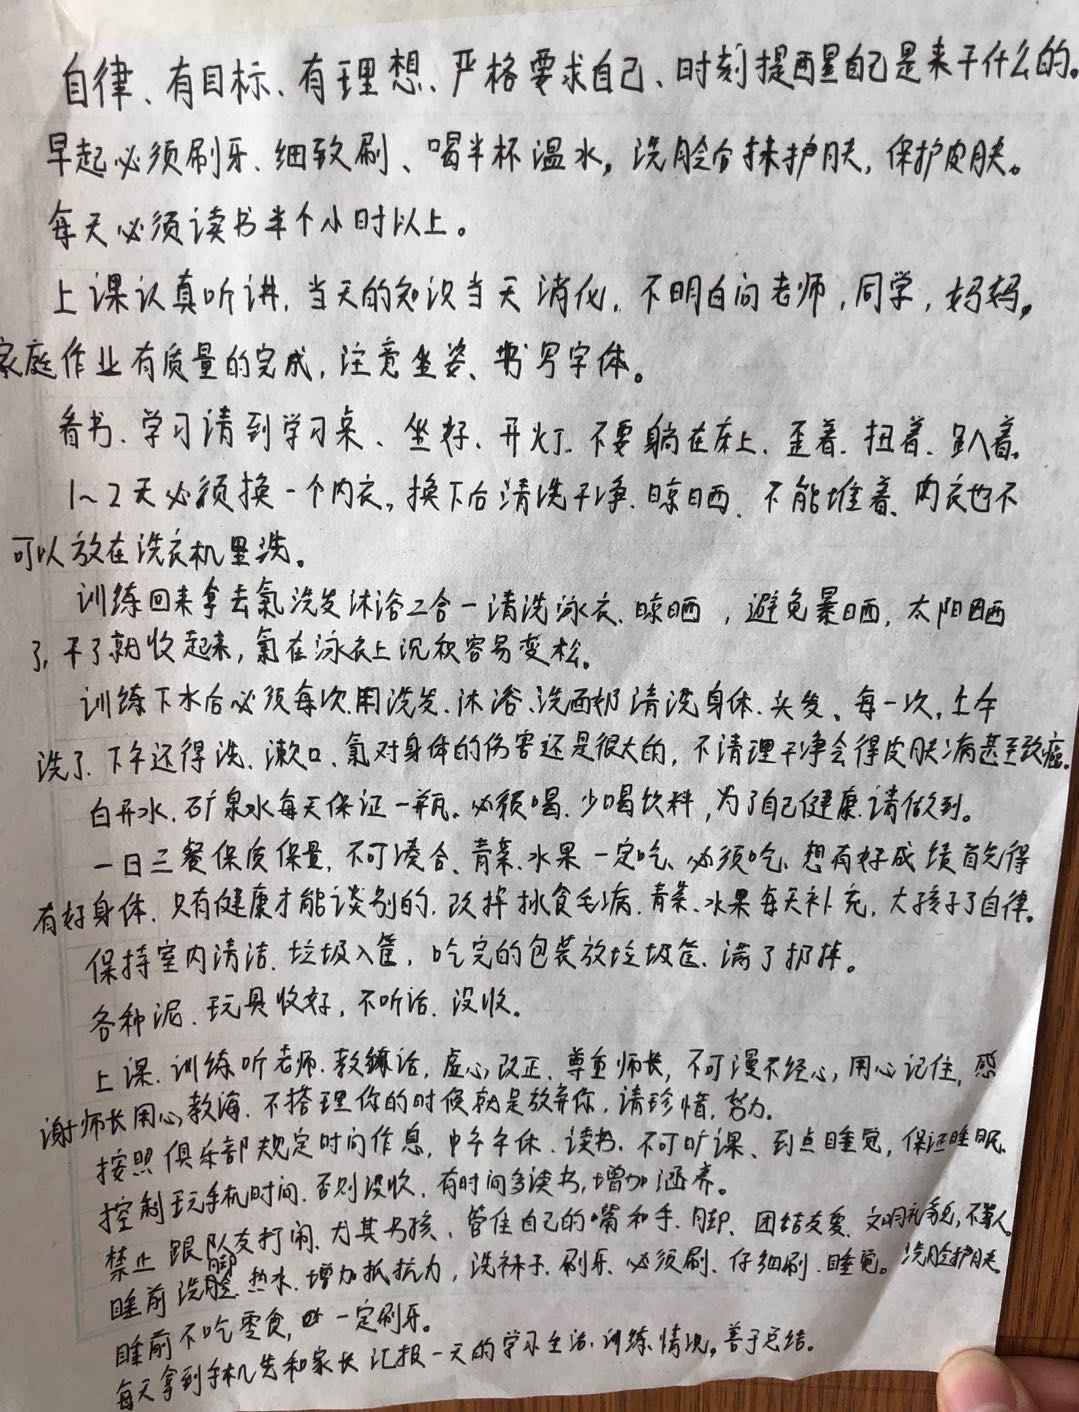 自律、有目标、有理想、严格要求自己、时刻提醒自己是来干什么的。
早起必须刷牙、细致刷、喝半杯温水,洗脸台抹护肤,保护皮肤。
每天必须读书半个小时以上。
上课认真听讲,当天的知识当天消化,不明白问老师,同学,妈妈,
家庭作业有质量的完成,注意坐姿、书写字体。
看书、学习请到学习桌、坐好、开灯、不要躺在床上、歪着、扭着、趴着。
1~2天必须换一个内衣,换下后清洗干净、晾晒、不能堆着、内衣也不
可以放在洗衣机里洗。
训练回来拿去氯洗发沐浴二合一清洗泳衣、晾晒,避免暴晒,太阳晒
了,干了就收起来,氯在泳衣上沉积容易变松。
训练下水后必须每次用洗发、沐浴、洗面奶清洗身体、头发、每一次,上午
洗了、下午还得洗、漱口、氯对身体的伤害还是很大的,不清理干净会得皮肤病甚至致癌。
白开水、矿泉水每天保证一瓶。必须喝、少喝饮料,为了自己健康、请做到。
一日三餐保质保量,不可凑合、青菜、水果一定吃、必须吃、想有好成绩首先得
有好身体、只有健康才能谈别的,改掉挑食毛病,青菜、水果每天补充,大孩子了自律。
保持室内清洁、垃圾入筐,吃完的包装放垃圾筐、满了扔掉。
各种泥、玩具收好,不听话、没收。
上课、训练听老师、教练话,虚心改正、尊重师长,不可漫不经心,用心记住,感
谢师长用心教海、不搭理你的时候就是放弃你,请珍惜,努力。
按照俱乐部规定时间作息,中午午休、读书、不可旷课、到点睡觉,保证睡眠、
控制玩手机时间、否则没收,有时间多读书,增加涵养。
禁止跟队友打闹、尤其男孩、管住自己的嘴和手、脚、团结友爱、文明礼貌,不骂人
睡前洗脸脚、热水、增加抵抗力,洗袜子、刷牙、必须刷、仔细刷、睡觉。洗脸护肤。
睡前不吃零食,一定刷牙。
每天拿到手机先和家长汇报一天的学习生活、训练情况,善于总结。